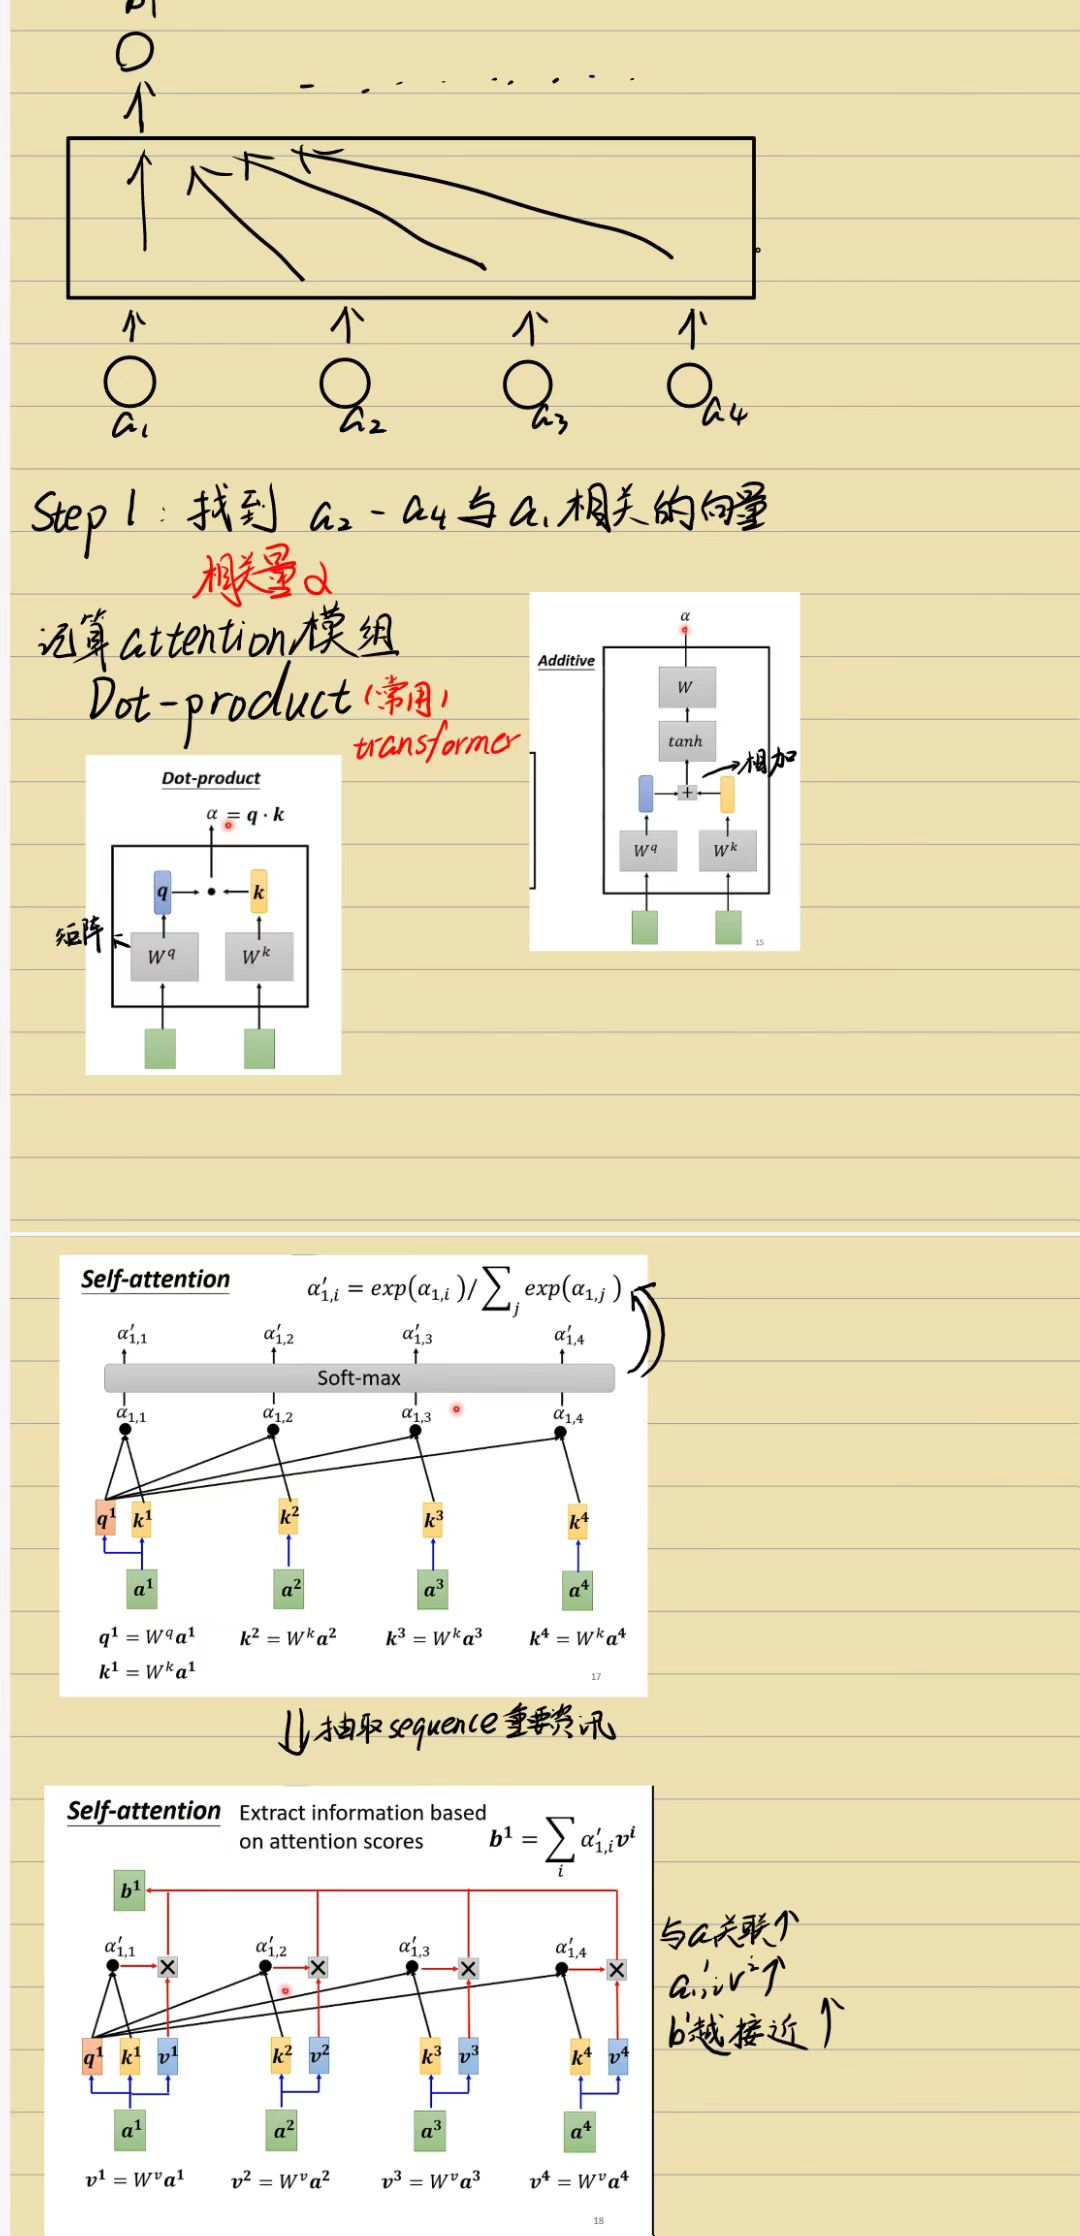 b1
a1 a2 a3 a4
Step 1: 找到 a2 - a4 与 a1 相关的向量
相关量α
运算attention模组
Dot-product (常用)
transformer
Additive
α
W
tanh
相加
+
W^q W^k
15
Dot-product
α = q · k
q k
矩阵
W^q W^k
Self-attention α′1,i = exp(α1,i)/∑j exp(α1,j)
α′1,1 α′1,2 α′1,3 α′1,4
Soft-max
α1,1 α1,2 α1,3 α1,4
q¹ k¹ k² k³ k⁴
a¹ a² a³ a⁴
q¹ = W^q a¹ k² = W^k a² k³ = W^k a³ k⁴ = W^k a⁴
k¹ = W^k a¹
17
抽取sequence重要资讯
Self-attention Extract information based
on attention scores b¹ = ∑i α′1,i vⁱ
b¹
α′1,1 α′1,2 α′1,3 α′1,4
× × × ×
q¹ k¹ v¹ k² v² k³ v³ k⁴ v⁴
a¹ a² a³ a⁴
v¹ = W^v a¹ v² = W^v a² v³ = W^v a³ v⁴ = W^v a⁴
18
与a关联↑
b越接近↑